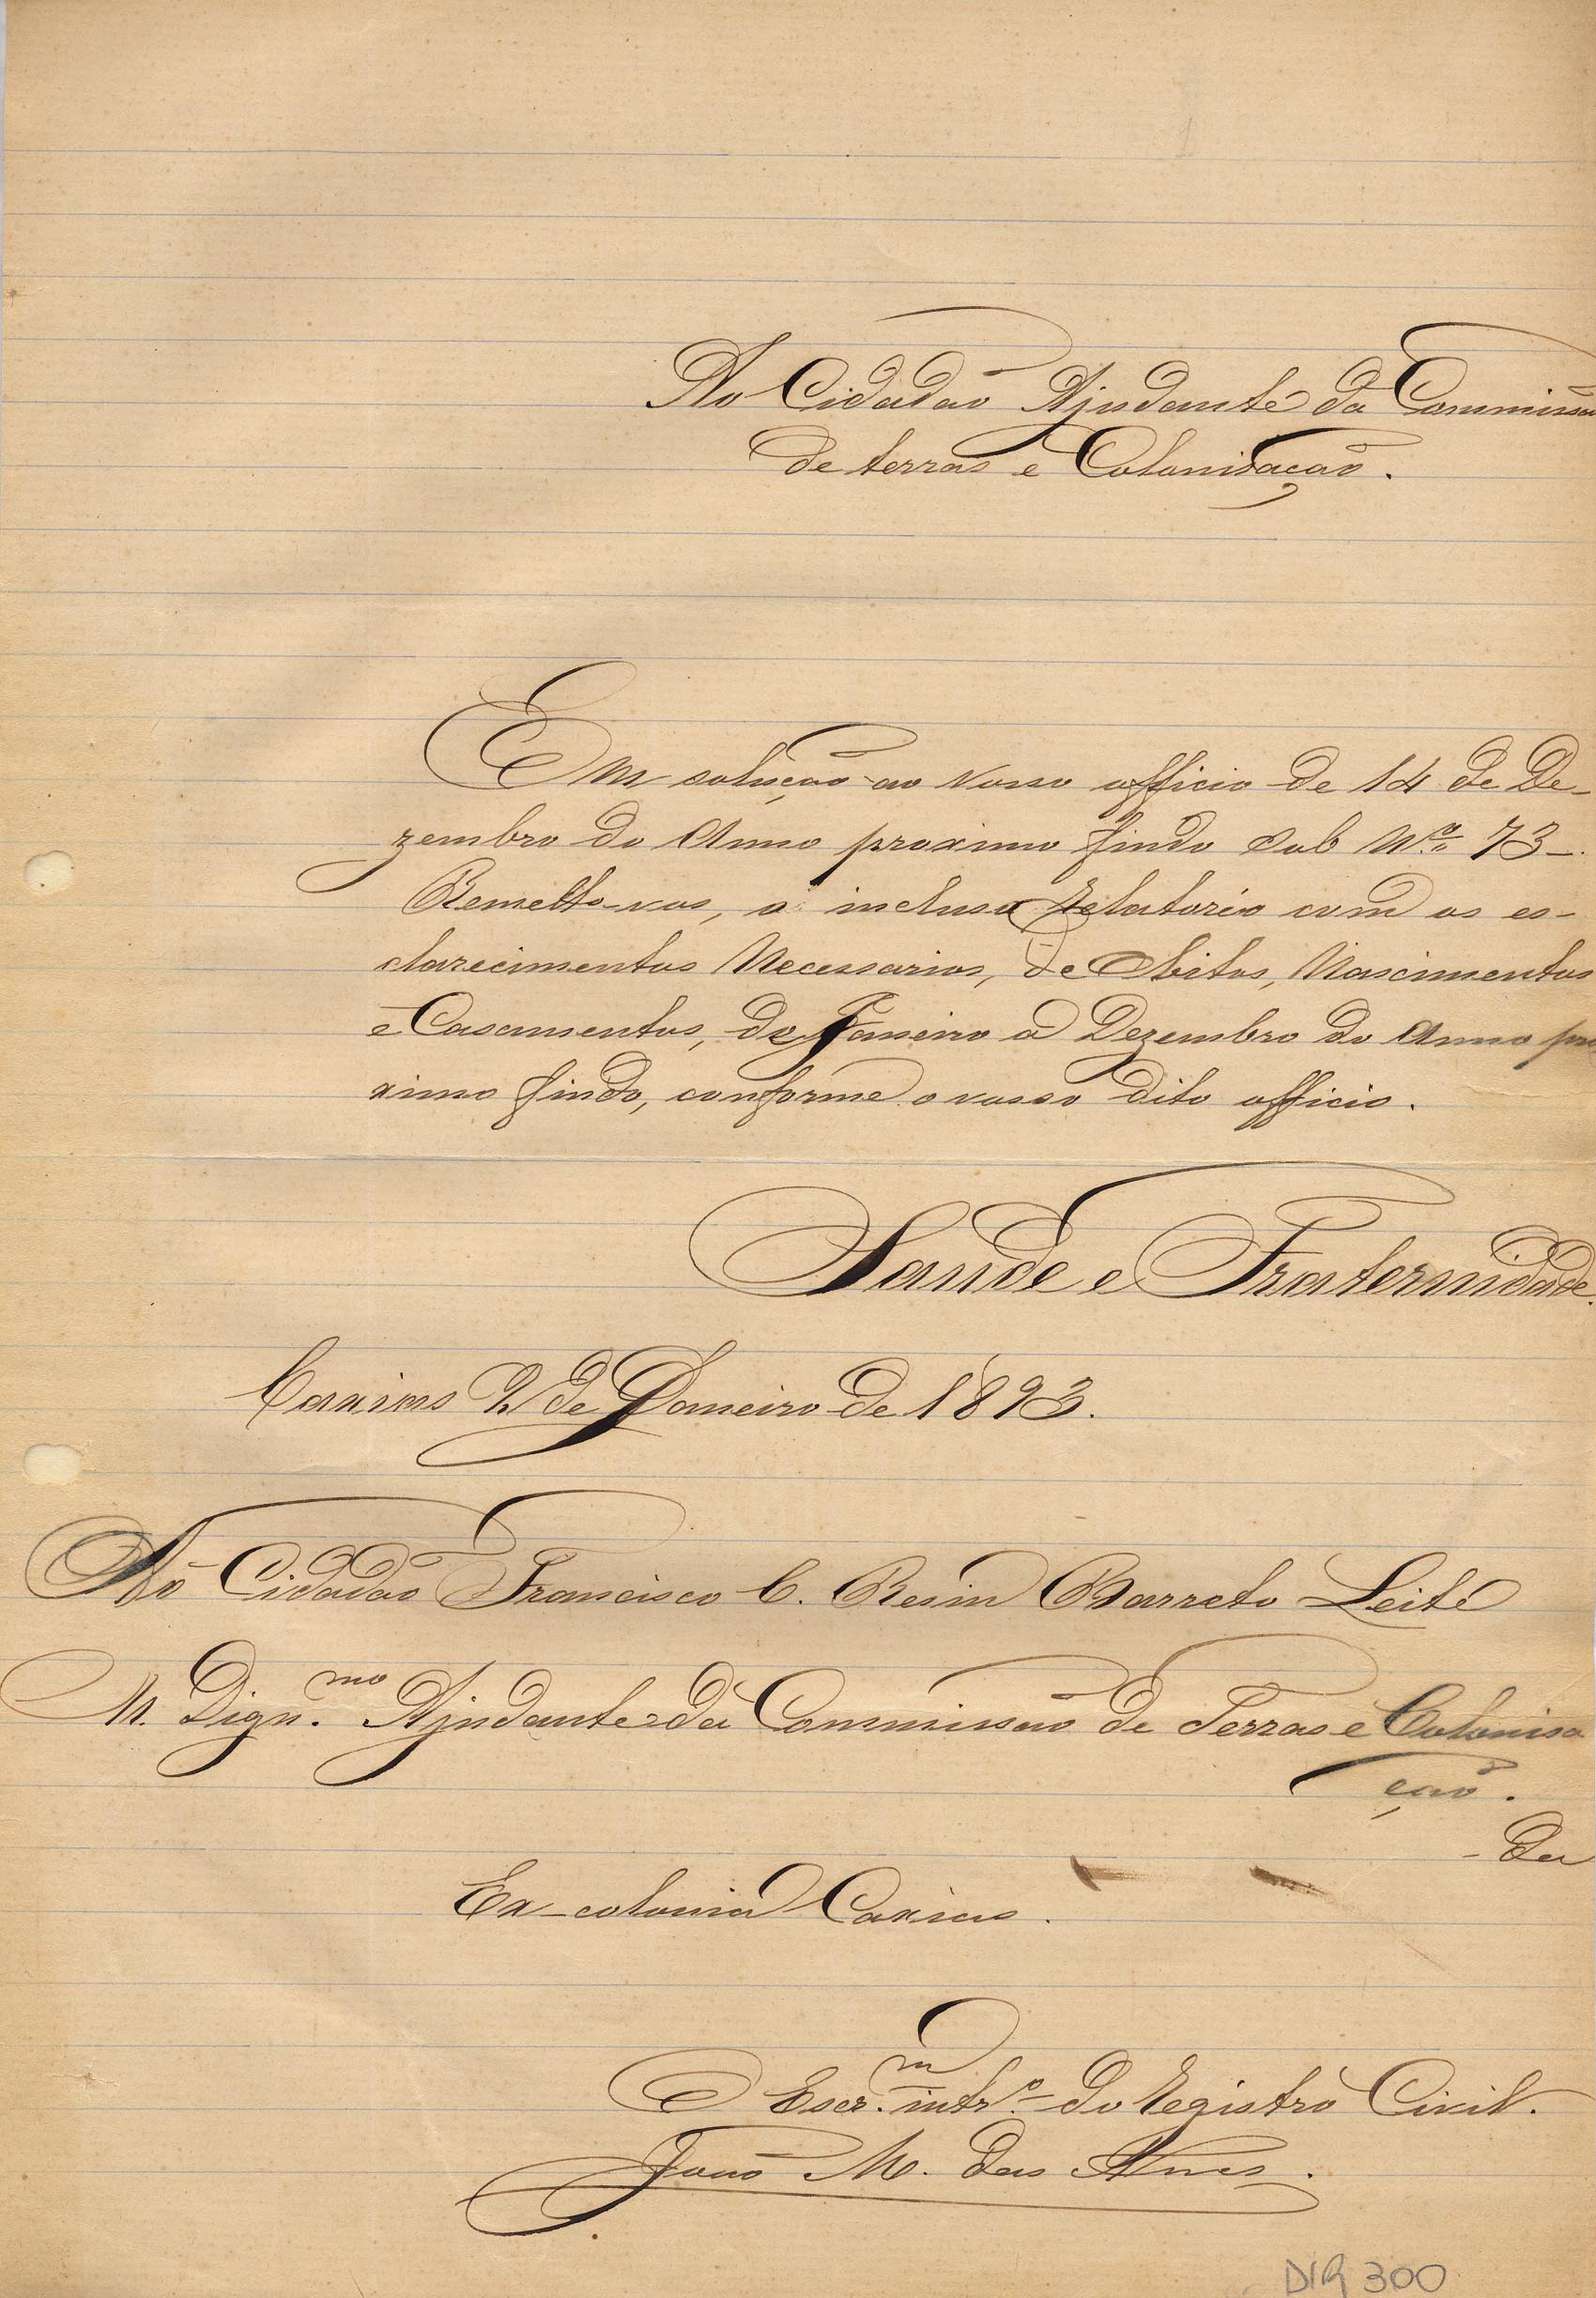 Ao Cidadão Ajudante da Commissão
de terras e Colonisação.
Em solução ao vosso officio de 14 de De-
zembro do Anno proximo findo sob Nº 73 -.
Remetto-vos, o incluso relatorio com os es-
clarecimentos Necessarios, de Obitos, Nascimentos
e Casamentos, de Janeiro a Dezembro do Anno pro
ximo findo, conforme o vosso dito officio.
Saude e Fraternidade.
Caxias 2 de Janeiro de 1893.
Ao Cidadão Francisco C. Resin Barreto Leite
M. Dign.mo Ajudante da Commissão de Terras e Colonisa
ção.
- da
Ex-colonia Caxias.
O Escr.m intrº do registro Civil.
João M. das
DIR 300